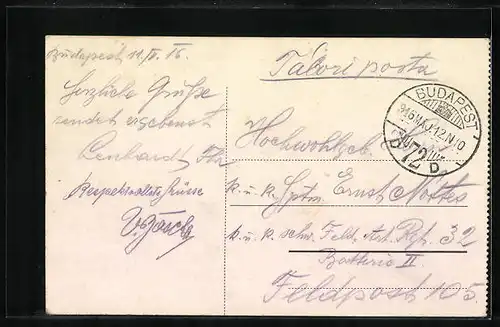 Budapest, 11. V. 16.
Herzliche Grüße
sendet ergebenst
Lenhardt
Respektvollste Grüsse
Tábori posta
BUDAPEST
916 MÁJ. 12. N. 10
72
D
Hochwohlgeb.
k. u. k. Hptm. Ernst Nottes
k. u. k. schw. Feld. Art. Rgt. 32
Batterie II
Feldpost 105.